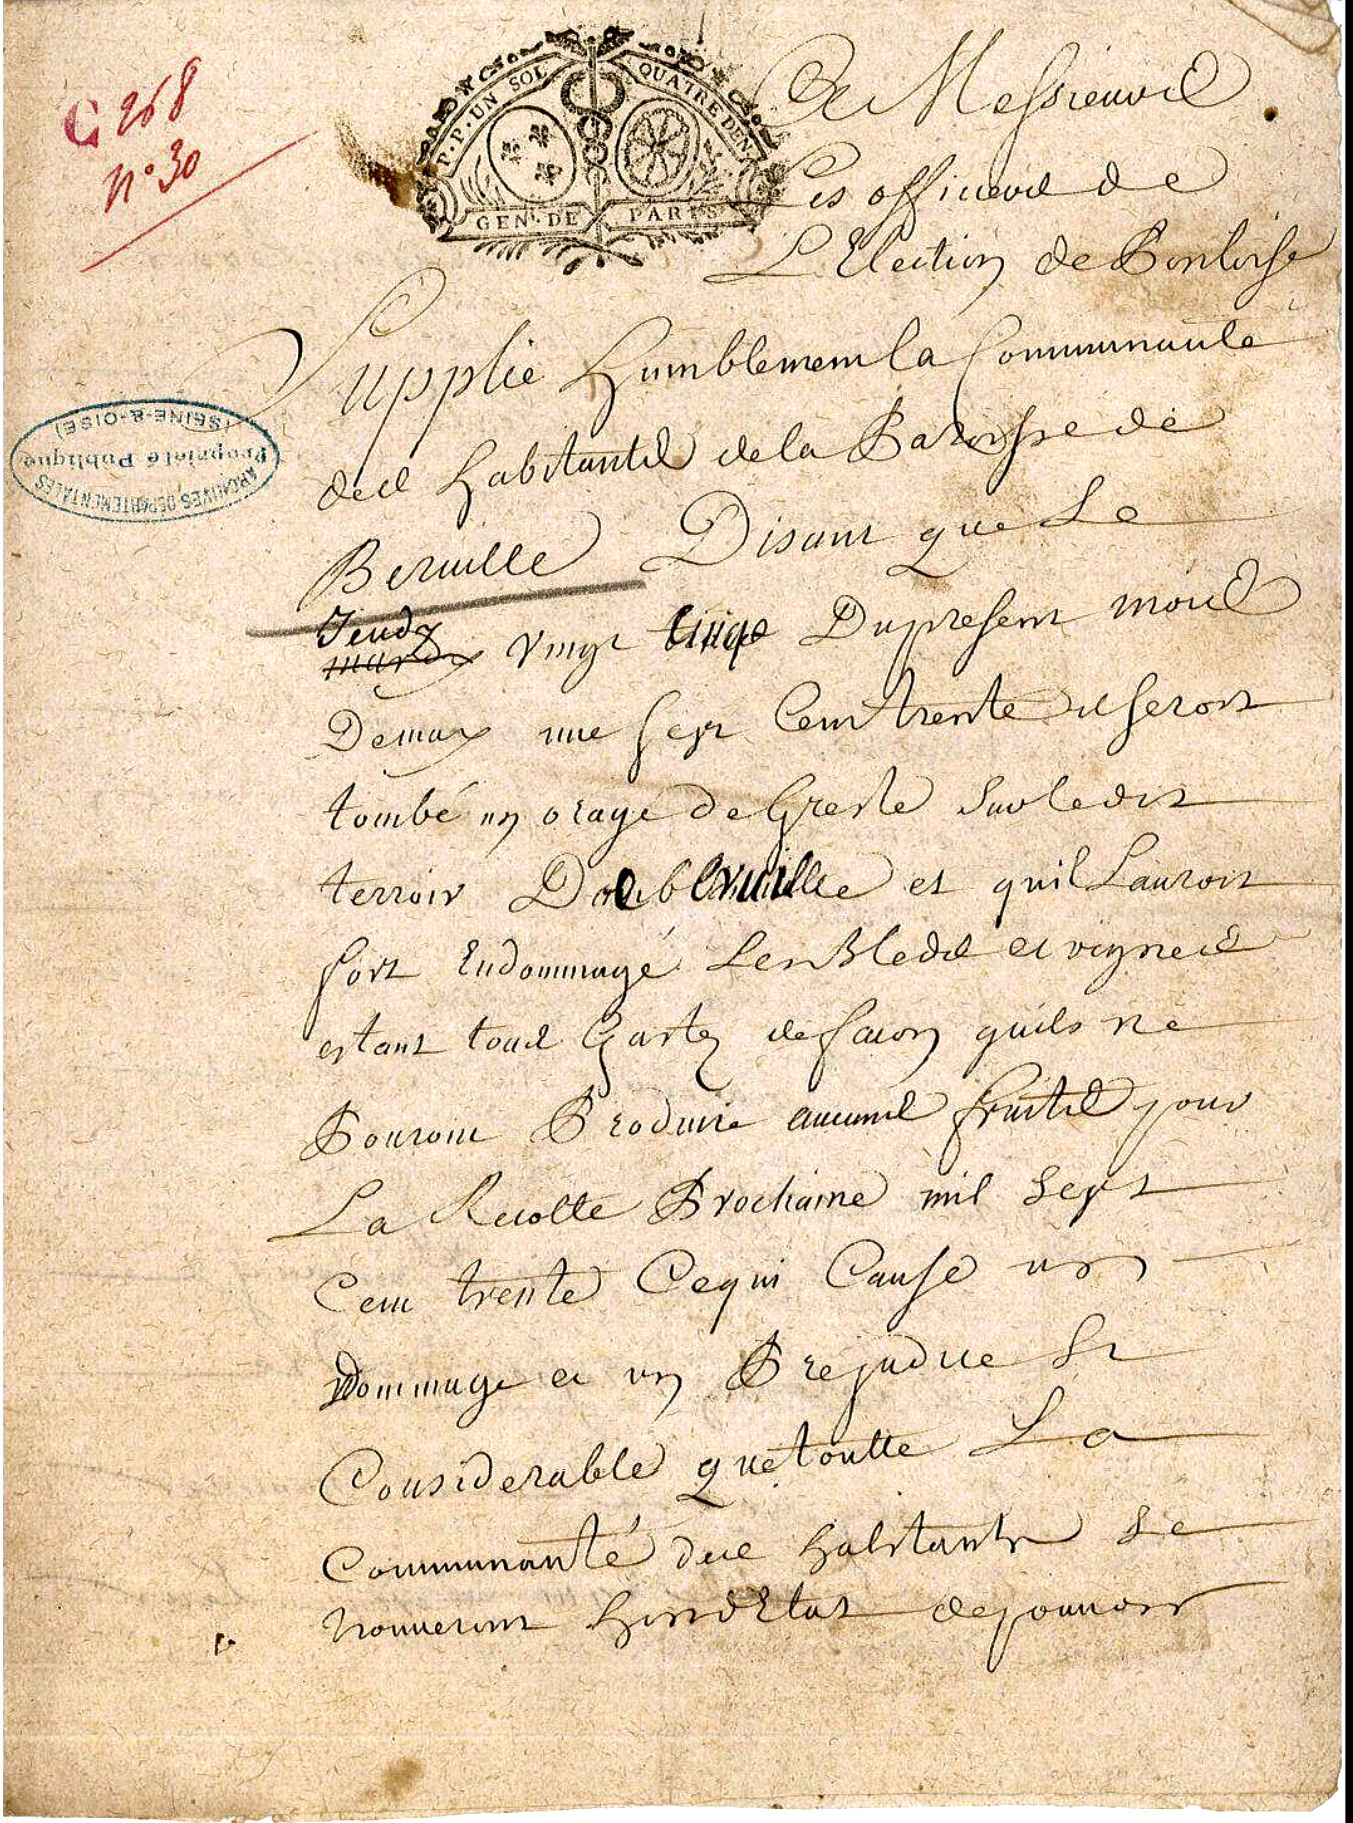 C 268
n° 30
P.P. UN SOL QUATRE DEN.
GEN. DE PARIS
A Messieurs
Les officiers de
L'Election de Pontoise
Supplie humblement la Communauté
des habitants de la Paroisse de
Berville Disant que Le
Jeudy
mardy vingt cinq Du present mois
De may mil sept Cent trente il seroit
tombé un orage de Gresle sur ledit
terroir De berville et qu'il l'auroit
fort Endommagé Les Bleds et vignes
estant tous Gastez de facon quils ne
Pouront Produire aucuns fruits pour
La Recolte Prochaine mil sept
Cent trente Ce qui Cause un
Dommage et un Prejudice Si
Considerable que toutte La
Communauté des habitants se
trouveront hors d'Etat de pouvoir
ARCHIVES DEPARTEMENTALES
Propriété Publique
(SEINE-&-OISE)